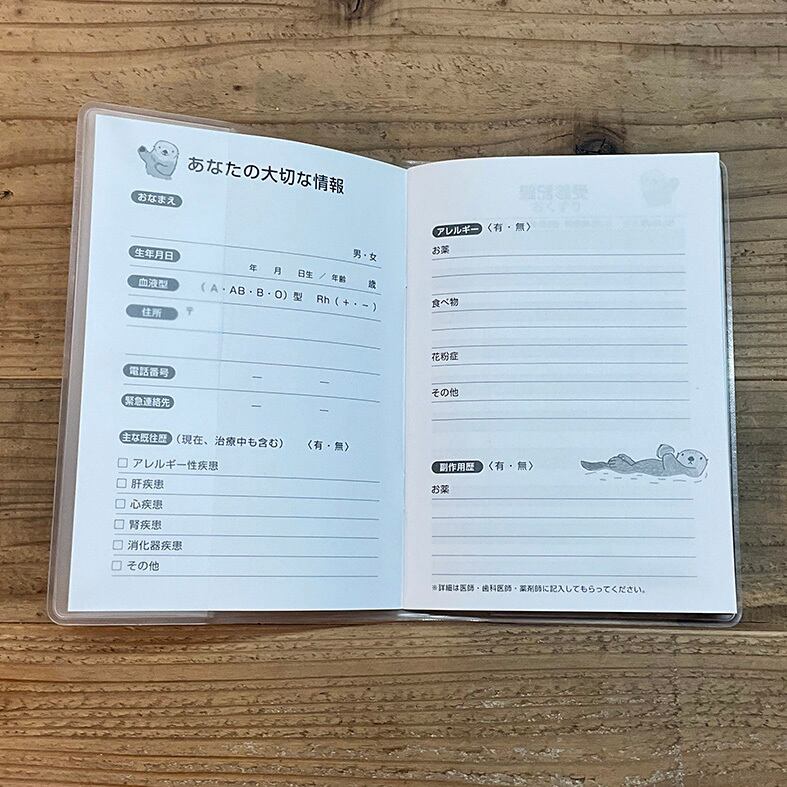 あなたの大切な情報
おなまえ
男・女
生年月日
年 月 日生 ／ 年齢 歳
血液型 （ A・AB・B・O ）型 Rh（ ＋・－ ）
住所 〒
電話番号 ― ―
緊急連絡先 ― ―
主な既往歴 （現在、治療中も含む） 〈有・無〉
□ アレルギー性疾患
□ 肝疾患
□ 心疾患
□ 腎疾患
□ 消化器疾患
□ その他
アレルギー 〈有・無〉
お薬
食べ物
花粉症
その他
副作用歴 〈有・無〉
お薬
※詳細は医師・歯科医師・薬剤師に記入してもらってください。